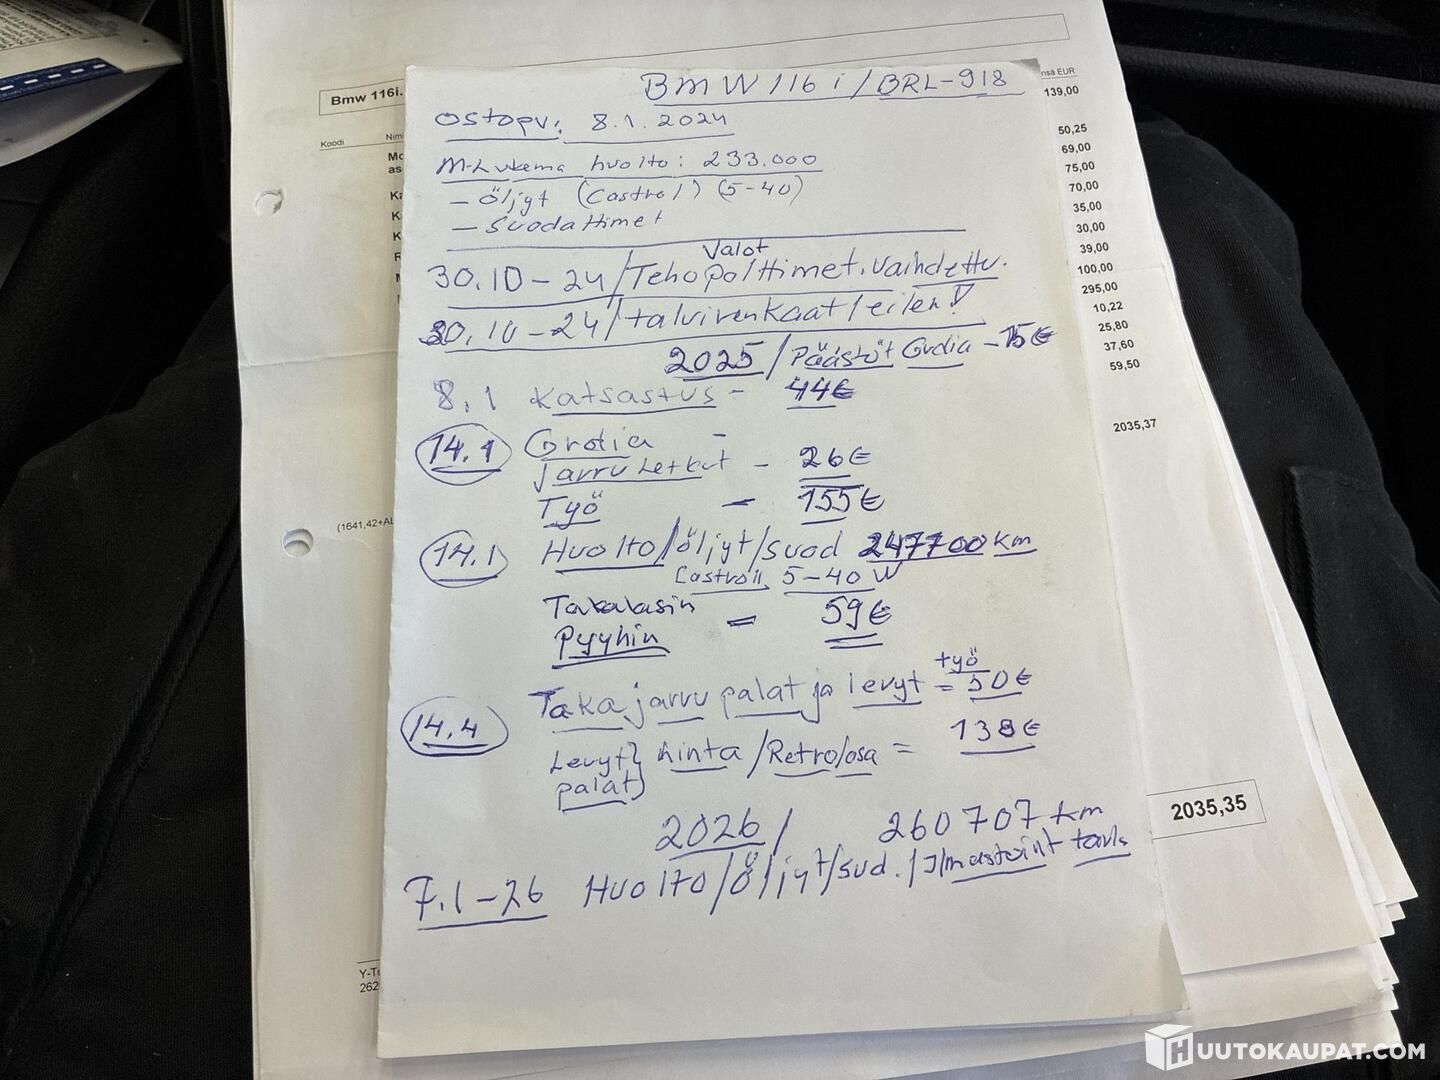 BMW 116 i / BRL-918
Ostopv: 8.1.2024
M-Lukema huolto: 233.000
- Öljyt (Castrol) (5-40)
- Suodattimet
Valot
30.10-24/Tehopolttimet. Vaihdettu.
30.10-24/talvirenkaat/eilen!
2025/Päästöt Grdia - 15€
8.1 Katsastus - 44€
14.1 Grdia -
Jarru Letkut - 26€
Työ - 155€
14.1 Huolto/öljyt/suod 247700 km
Castroll 5-40 W
Takalasin
Pyyhin = 59€
työ
14.4 Taka jarru palat ja levyt = 50€
Levyt} hinta/Retro/osa = 138€
palat}
2026/ 260707 km
7.1-26 Huolto/öljyt/sud./
Bmw 116i.
Koodi Nim
Mo
as
nsä EUR
139,00
50,25
69,00
75,00
70,00
35,00
30,00
39,00
100,00
295,00
10,22
25,80
37,60
59,50
2035,37
(1641,42+AL
2035,35
Y-Tu
262
HUUTOKAUPAT.COM